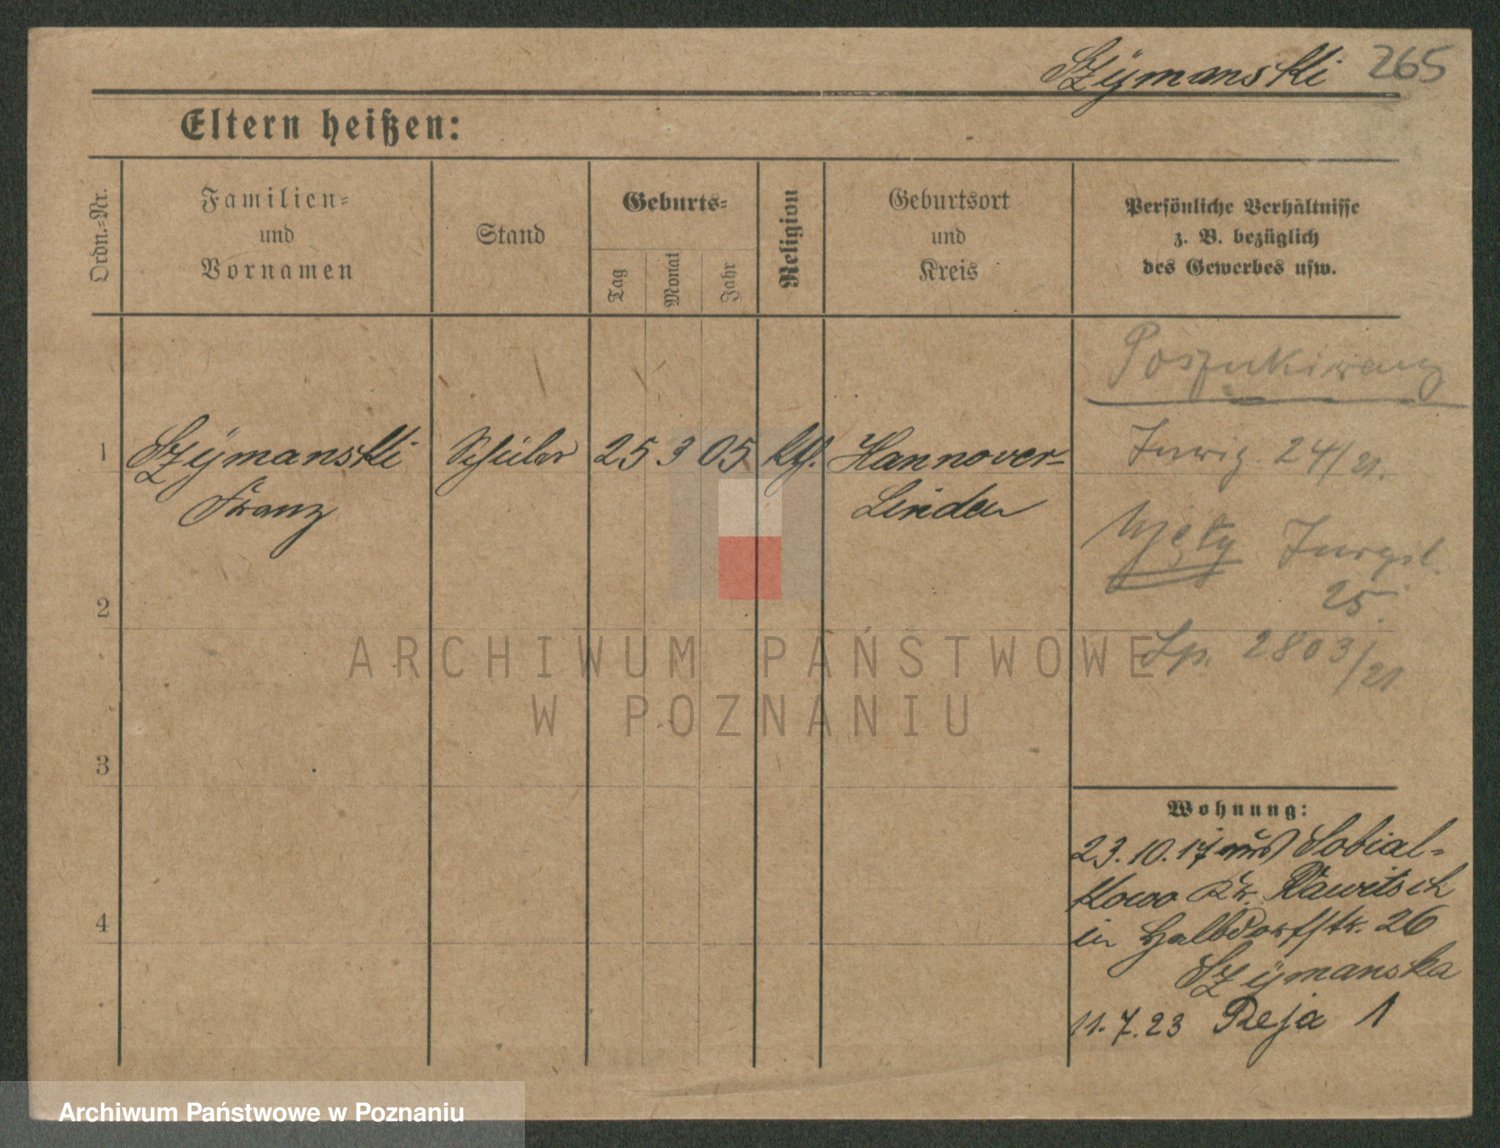 Szÿmanski 265
Eltern heißen:
Ordn.-Nr.
Familien-
und
Vornamen
Stand
Geburts-
Tag
Monat
Jahr
Religion
Geburtsort
und
Kreis
Persönliche Verhältnisse
z. B. bezüglich
des Gewerbes usw.
Poszukiwany
1 Szÿmanski Schüler 25 3 05 kth. Hannover-
Franz Linden
24/21.
25.
2
2803/21
ARCHIWUM PAŃSTWOWE
W POZNANIU
3
Wohnung:
23.10.17 aus Sobial-
kowo Kr. Rawitsch
in Halbdorfstr. 26
Szÿmanska
11.7.23 Reja 1
4
Archiwum Państwowe w Poznaniu